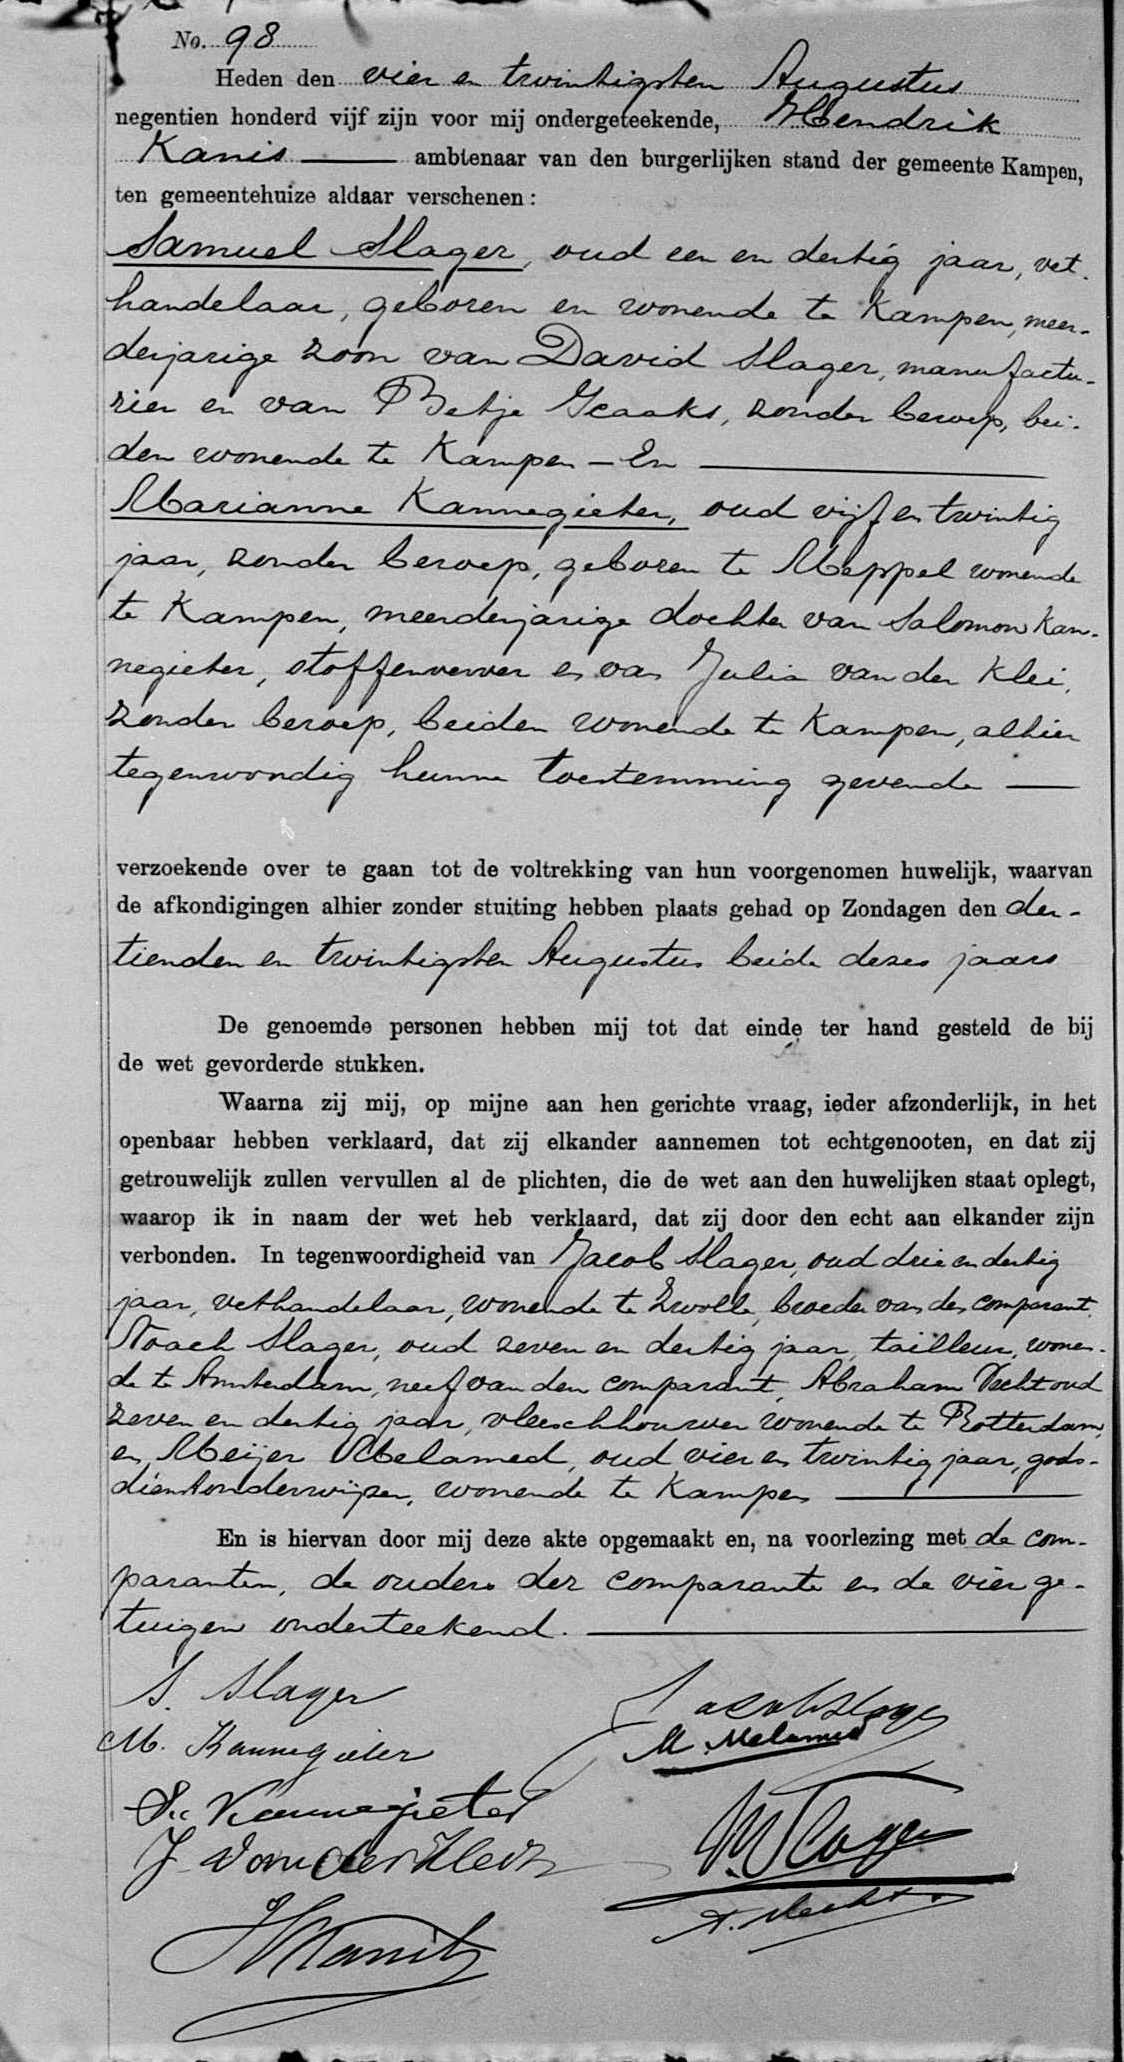 No. 98
Heden den vier en twintigsten Augustus
negentien honderd vijf zijn voor mij ondergeteekende, Hendrik
Kanis ambtenaar van den burgerlijken stand der gemeente Kampen,
ten gemeentehuize aldaar verschenen:
Samuel Slager, oud een en dertig jaar, vet-
handelaar, geboren en wonende te Kampen, meer-
derjarige zoon van David Slager, manufactu-
rier en van Betje Isaaks, zonder beroep, bei-
den wonende te Kampen – En
Marianne Kannegieter, oud vijf en twintig
jaar, zonder beroep, geboren te Meppel wonende
te Kampen, meerderjarige dochter van Salomon Kan-
negieter, stoffenverver en van Julia van der Klei,
zonder beroep, beiden wonende te Kampen, alhier
tegenwoordig hunne toestemming gevende
verzoekende over te gaan tot de voltrekking van hun voorgenomen huwelijk, waarvan
de afkondigingen alhier zonder stuiting hebben plaats gehad op Zondagen den der-
tienden en twintigsten Augustus beide dezes jaars
De genoemde personen hebben mij tot dat einde ter hand gesteld de bij
de wet gevorderde stukken.
Waarna zij mij, op mijne aan hen gerichte vraag, ieder afzonderlijk, in het
openbaar hebben verklaard, dat zij elkander aannemen tot echtgenooten, en dat zij
getrouwelijk zullen vervullen al de plichten, die de wet aan den huwelijken staat oplegt,
waarop ik in naam der wet heb verklaard, dat zij door den echt aan elkander zijn
verbonden. In tegenwoordigheid van Jacob Slager, oud drie en dertig
jaar, vethandelaar, wonende te Zwolle, broeder van den comparant,
Noach Slager, oud zeven en dertig jaar, tailleur, wonen-
de te Amsterdam, neef van den comparant, Abraham Vecht oud
zeven en dertig jaar, vleeschhouwer wonende te Rotterdam,
en Meijer Melamed, oud vier en twintig jaar, gods-
dienstonderwijzer, wonende te Kampen
En is hiervan door mij deze akte opgemaakt en, na voorlezing met de com-
paranten, de ouders der comparante en de vier ge-
tuigen onderteekend.
S. Slager
Jacob Slager
M. Kannegieter
M. Melamed
S. Kannegieter
N. Slager
J van der Klei
A. Vecht
HKanis